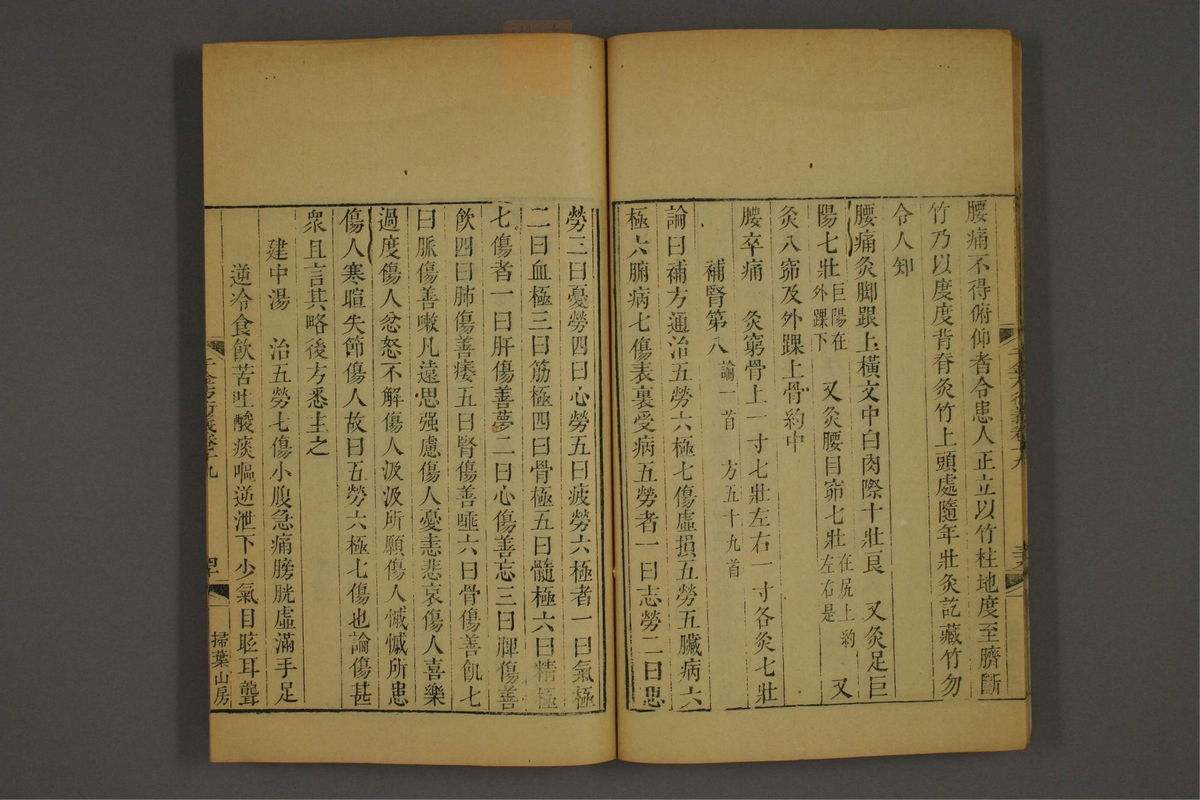 腰痛不得俯仰者令患人正立以竹柱地度至臍斷
竹乃以度度背脊灸竹上頭處隨年壯灸訖藏竹勿
令人知
腰痛灸脚跟上橫文中白肉際十壯良　又灸足巨
陽七壯巨陽在外踝下　又灸腰目窌七壯在尻上約左右是　又
灸八窌及外踝上骨約中
腰卒痛　灸窮骨上一寸七壯左右一寸各灸七壯
補腎第八論一首　方五十九首
論曰補方通治五勞六極七傷虛損五勞五臟病六
極六腑病七傷表裏受病五勞者一曰志勞二曰思
勞三曰憂勞四曰心勞五曰疲勞六極者一曰氣極
二曰血極三曰筋極四曰骨極五曰髓極六曰精極
七傷者一曰肝傷善夢二曰心傷善忘三曰脾傷善
飲四曰肺傷善痿五曰腎傷善唾六曰骨傷善飢七
曰脈傷善嗽凡遠思强慮傷人憂恚悲哀傷人喜樂
過度傷人忿怒不解傷人汲汲所願傷人慼慼所患
傷人寒暄失節傷人故曰五勞六極七傷也論傷甚
衆且言其略後方悉主之
建中湯　治五勞七傷小腹急痛膀胱虛滿手足
逆冷食飲苦吐酸痰嘔逆泄下少氣目眩耳聾
千金方衍義卷十九
掃葉山房